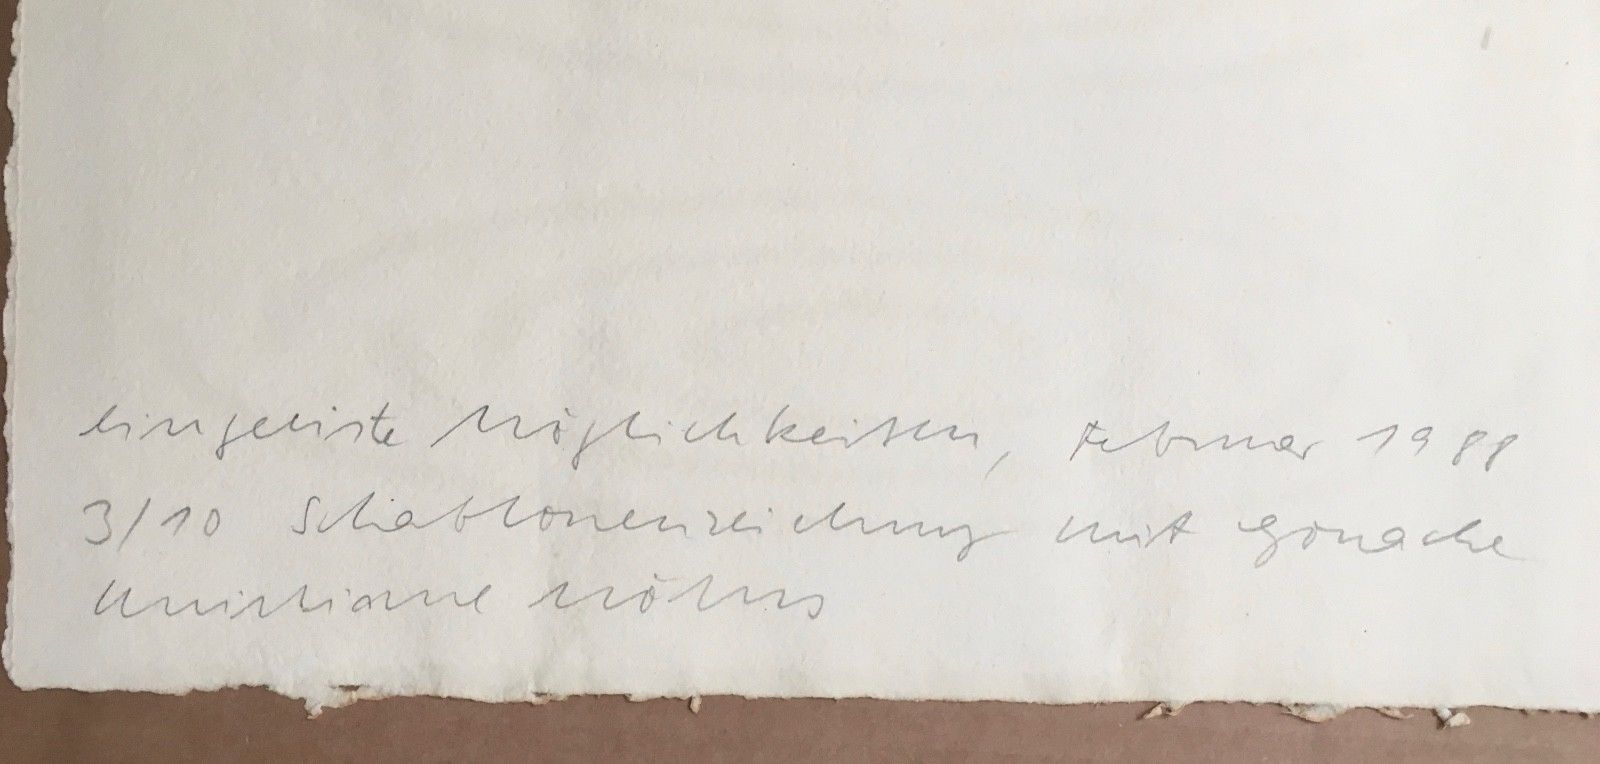 eingekiste Möglichkeiten, Februar 1988
3/10 Schablonenzeichnung mit Gouache
Christiane Möbus